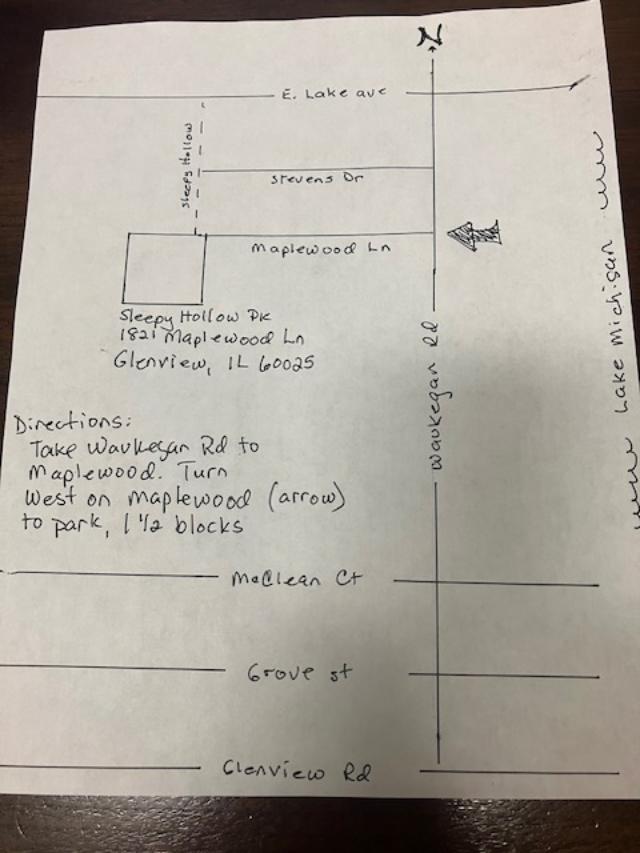 N
E. Lake ave
Sleepy Hollow
Stevens Dr
Maplewood Ln
Sleepy Hollow Pk
1821 Maplewood Ln
Glenview, IL 60025
Waukegan Rd
Lake Michigan
Directions:
Take Waukegan Rd to
Maplewood. Turn
West on Maplewood (arrow)
to park, 1 1/2 blocks
McClean Ct
Grove st
Glenview Rd